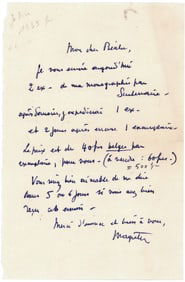 Mon cher Rieder,
Je vous envoie aujourd'hui
2 ex. de ma monographie par
Scutenaire.
après demain, j'expédierai 1 ex.
et 2 jours après encore 1 exemplaire
Le prix est de 40 frs belges par
exemplaire, pour vous. (à vendre : 60 frs.)
Vous seriez bien aimable de me dire
dans 5 ou 6 jours si vous avez bien
reçu cet envoi.
Merci d'avance et bien à vous,
Magritte